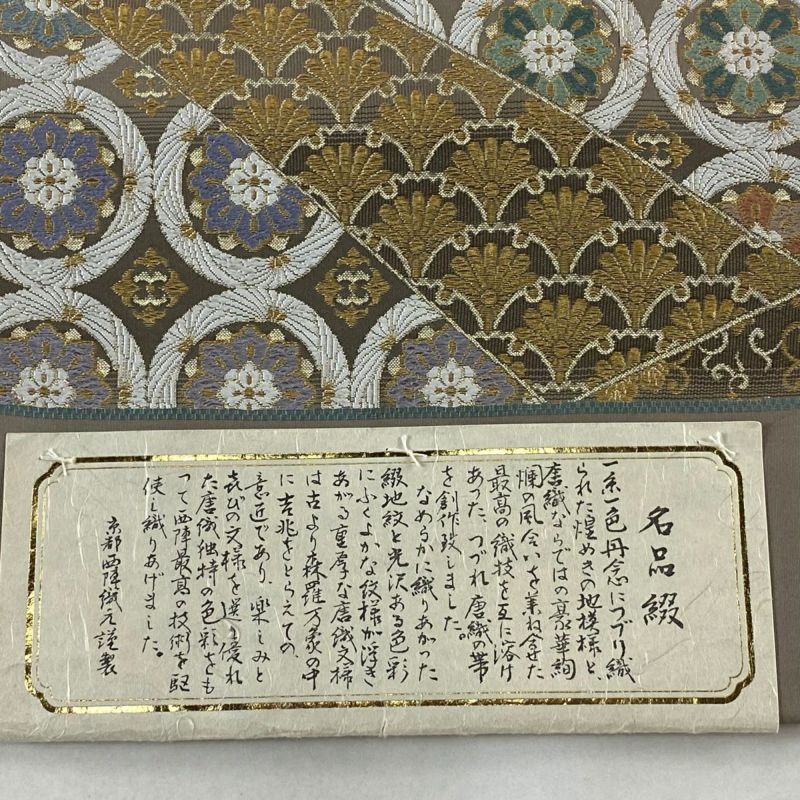 名品綴
一糸一色丹念につづり織
られた煌めきの地模様と、
唐織ならではの豪華絢
爛の風合いを兼ね合せた
最高の織技を互に溶け
あった、つづれ唐織の帯
を創作致しました。
なめらかに織りあがった
綴地紋と光沢ある色彩
にふくよかな紋様が浮き
あがる重厚な唐織文様
は古より森羅万象の中
に吉兆をとらえての、
意匠であり、楽しみと
喜びの文様を選び優れ
た唐織独特の色彩をも
って西陣最高の技術を駆
使し織りあげました。
京都西陣織元謹製